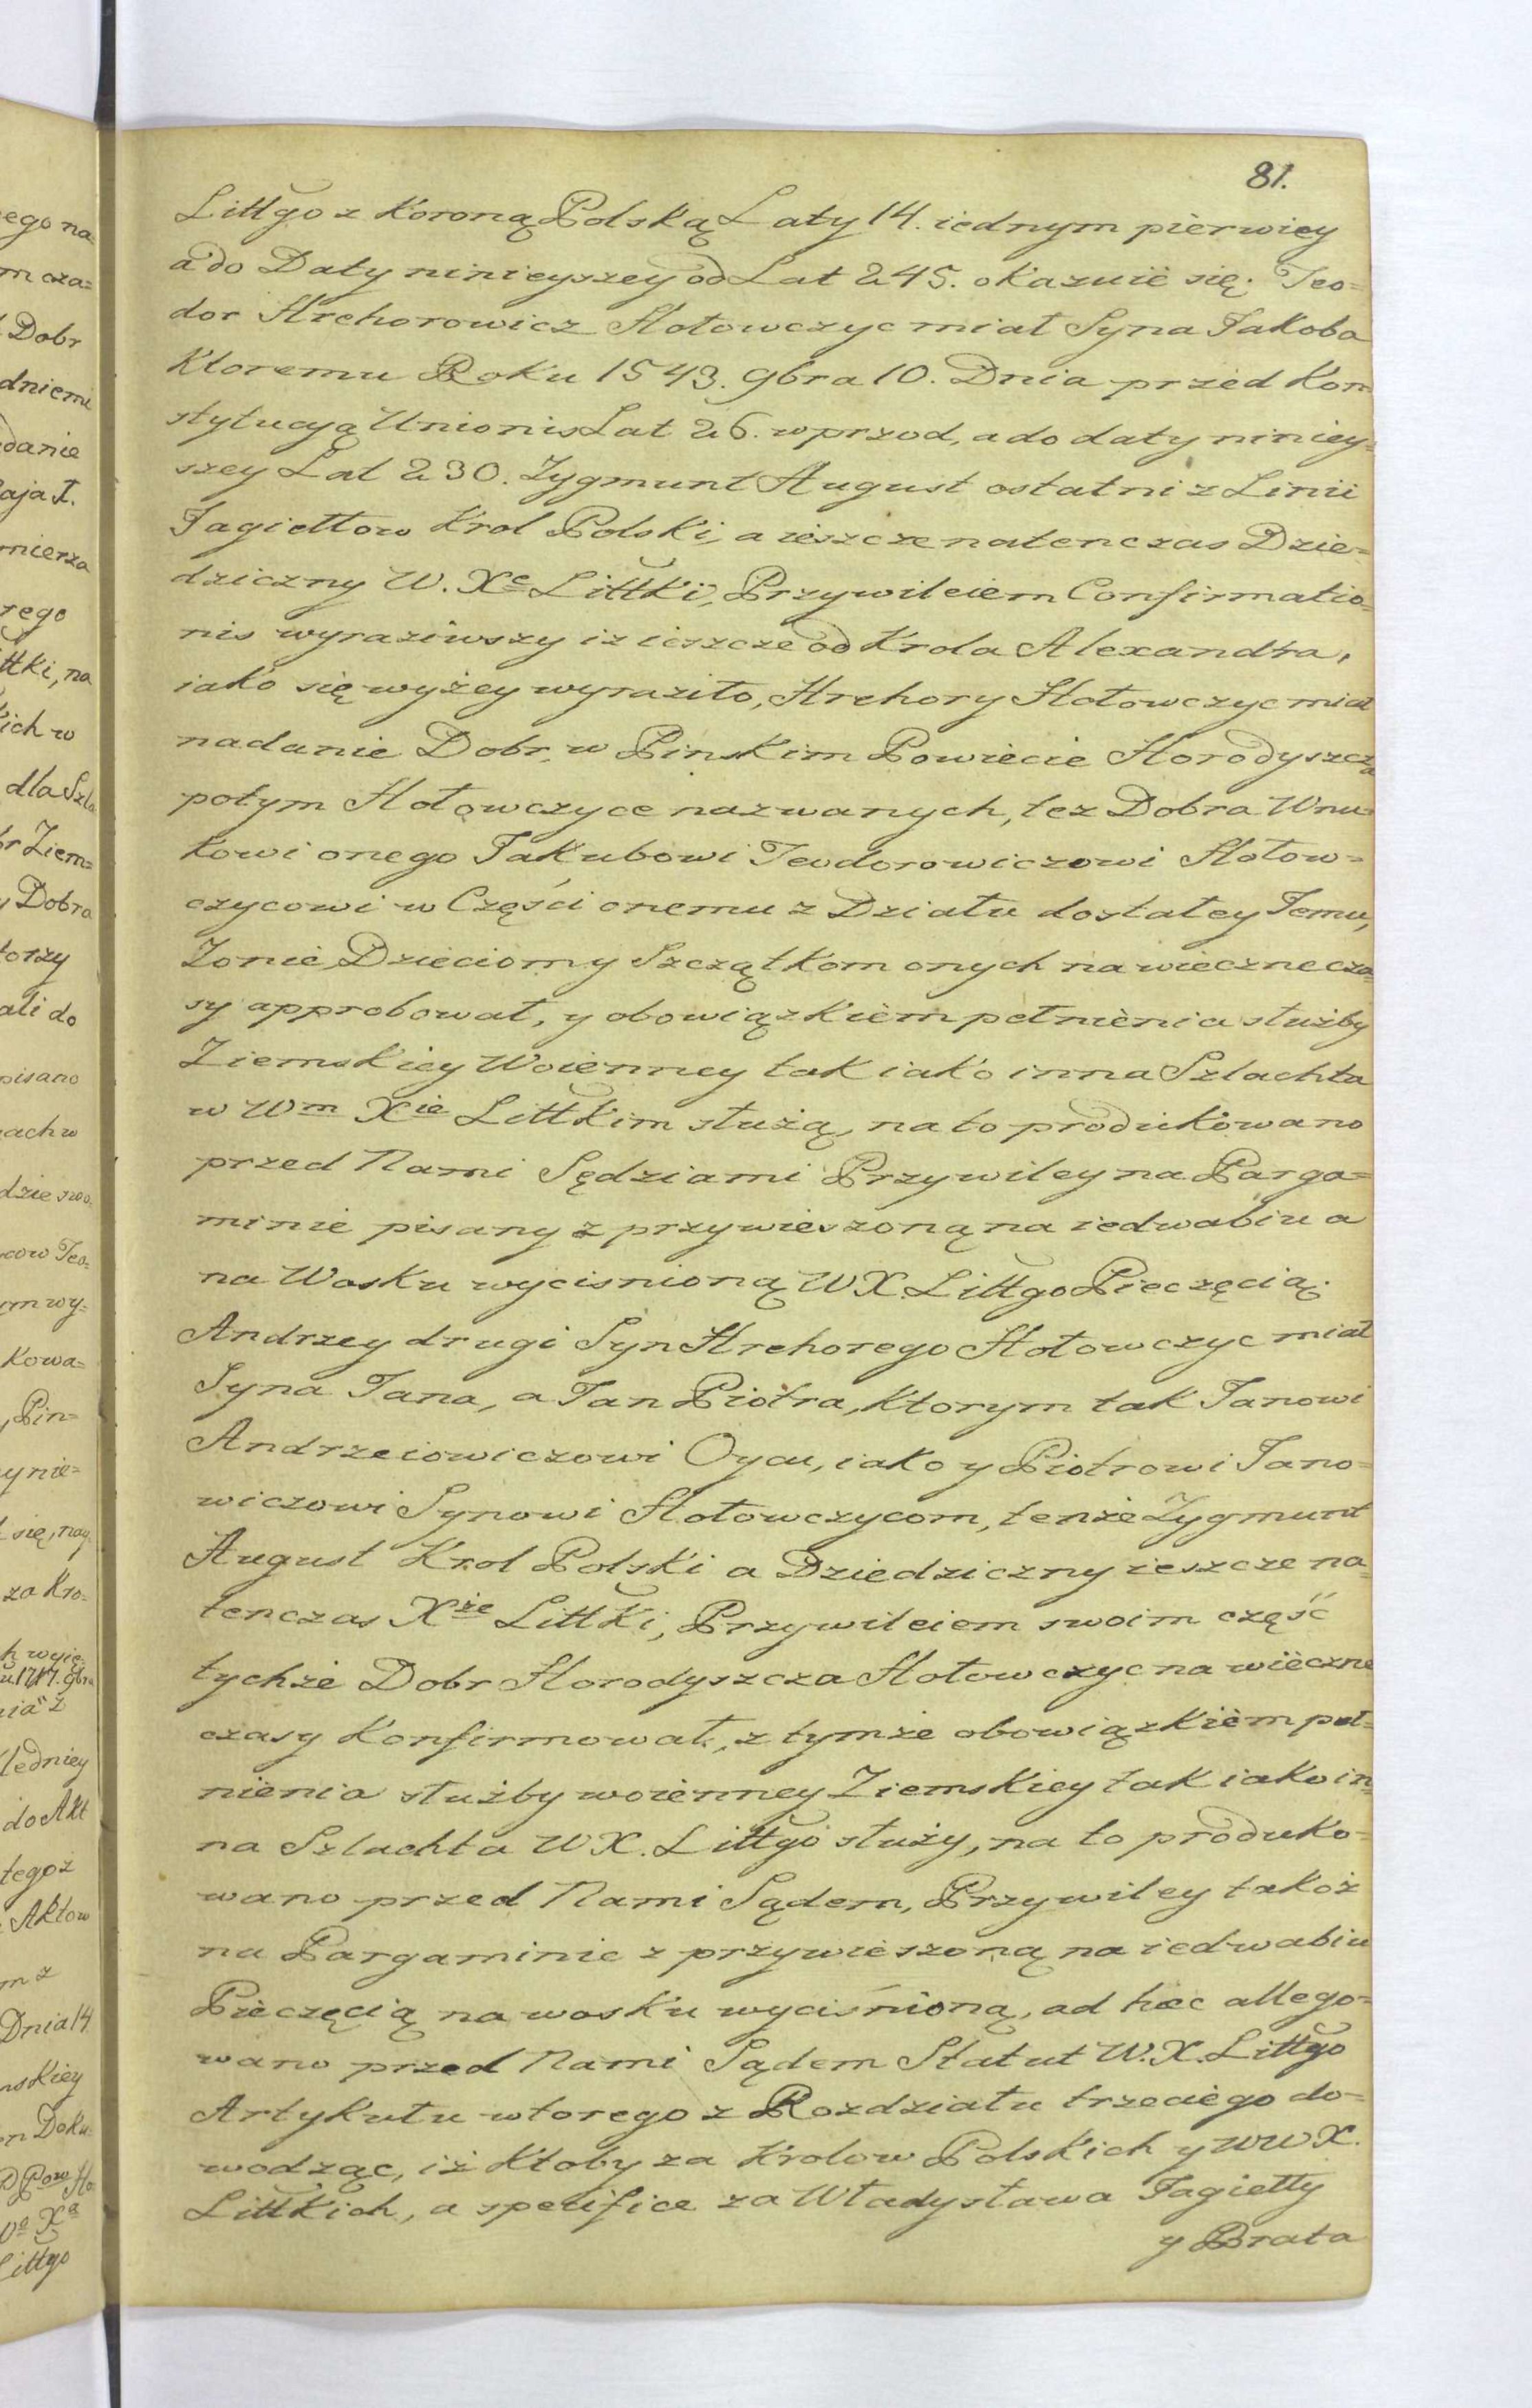 81.
Littgo z Koroną Polską Laty 14. iednym pierwiey
a do Daty ninieyszey od Lat 245. okazuie się. Teo=
dor Hrehorowicz Hołowczyc miał Syna Jakoba
Ktoremu Roku 1543. 9bra 10. Dnia przed Kon
stytucyą Unionis Lat 26. wprzod, a do daty niniey=
szey Lat 230. Zygmunt August ostatni z Linii
Jagiełłow Krol Polski, a ieszcze natenczas Dzie=
dziczny W. Xe Littki, Przywileiem Confirmatio=
nis wyraziwszy iż ieszcze od Krola Alexandra,
iako się wyżey wyraziło, Hrehory Hołowczyc miał
nadanie Dobr, w Pinskim Powiecie Horodyszcza
potym Hołowczyce nazwanych, tez Dobra Wnu=
kowi onego Jakubowi Teodorowiczowi Hołow=
czycowi w Części onemu z Działu dostałey Jemu,
Zonie, Dzieciom y Szczątkom onych na wieczne cza=
sy approbował, y obowiązkiem pełnienia służby
Ziemskiey Woienney tak iako inna Szlachta
w Wm Xie Littkim służą, na to produkowano
przed Nami Sędziami Przywiley na Parga=
minie pisany z przywieszoną na iedwabiu a
na Wosku wycisnioną W X. Littgo Pieczęcią.
Andrzey drugi Syn Hrehorego Hołowczyc miał
Syna Jana, a Jan Piotra, Ktorym tak Janowi
Andrzeiowiczowi Oycu, iako y Piotrowi Jano=
wiczowi Synowi Hołowczycom, tenże Zygmunt
August Krol Polski a Dziedziczny ieszcze na=
tenczas Xże Littki, Przywileiem swoim część
tychże Dobr Horodyszcza Hołowczyc na wieczne
czasy Konfirmował, z tymże obowiązkiem peł=
nienia służby woienney Ziemskiey tak iako in=
na Szlachta W X. Littgo służy, na to produko=
wano przed Nami Sądem, Przywiley takoż
na Pargaminie z przywieszoną na iedwabiu
Pieczęcią na wosku wyciśnioną, ad hæc allego=
wano przed Nami Sądem Statut W. X. Littgo
Artykułu wtorego z Rozdziału trzeciego do=
wodząc, iż Ktoby za Krolow Polskich y WW X.
Littkich, a specifice za Władysława Jagiełły
y Brata